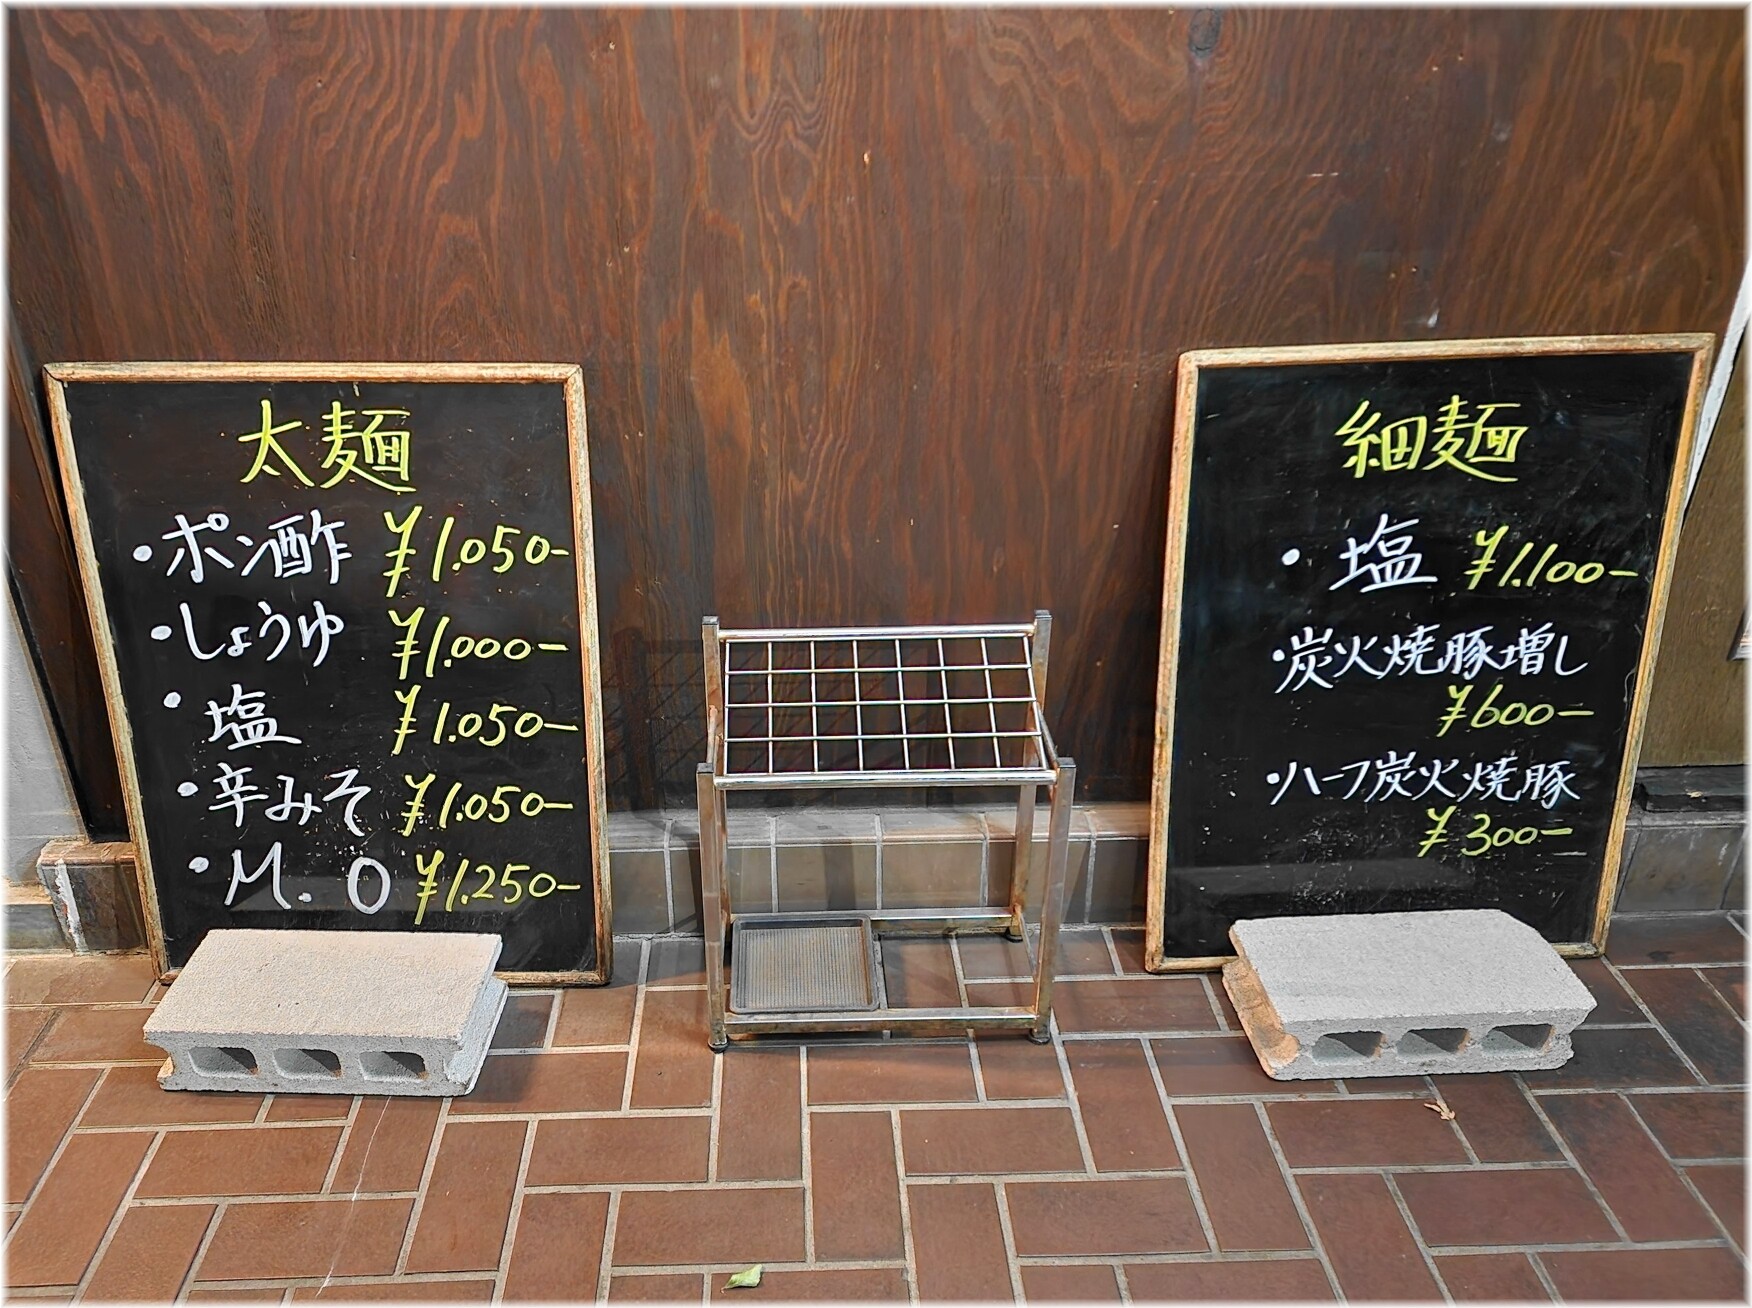 太麺
・ポン酢 ¥1.050-
・しょうゆ ¥1.000-
・塩 ¥1.050-
・辛みそ ¥1.050-
・M.O ¥1.250-
細麺
・塩 ¥1.100-
・炭火焼豚増し
¥600-
・ハーフ炭火焼豚
¥300-